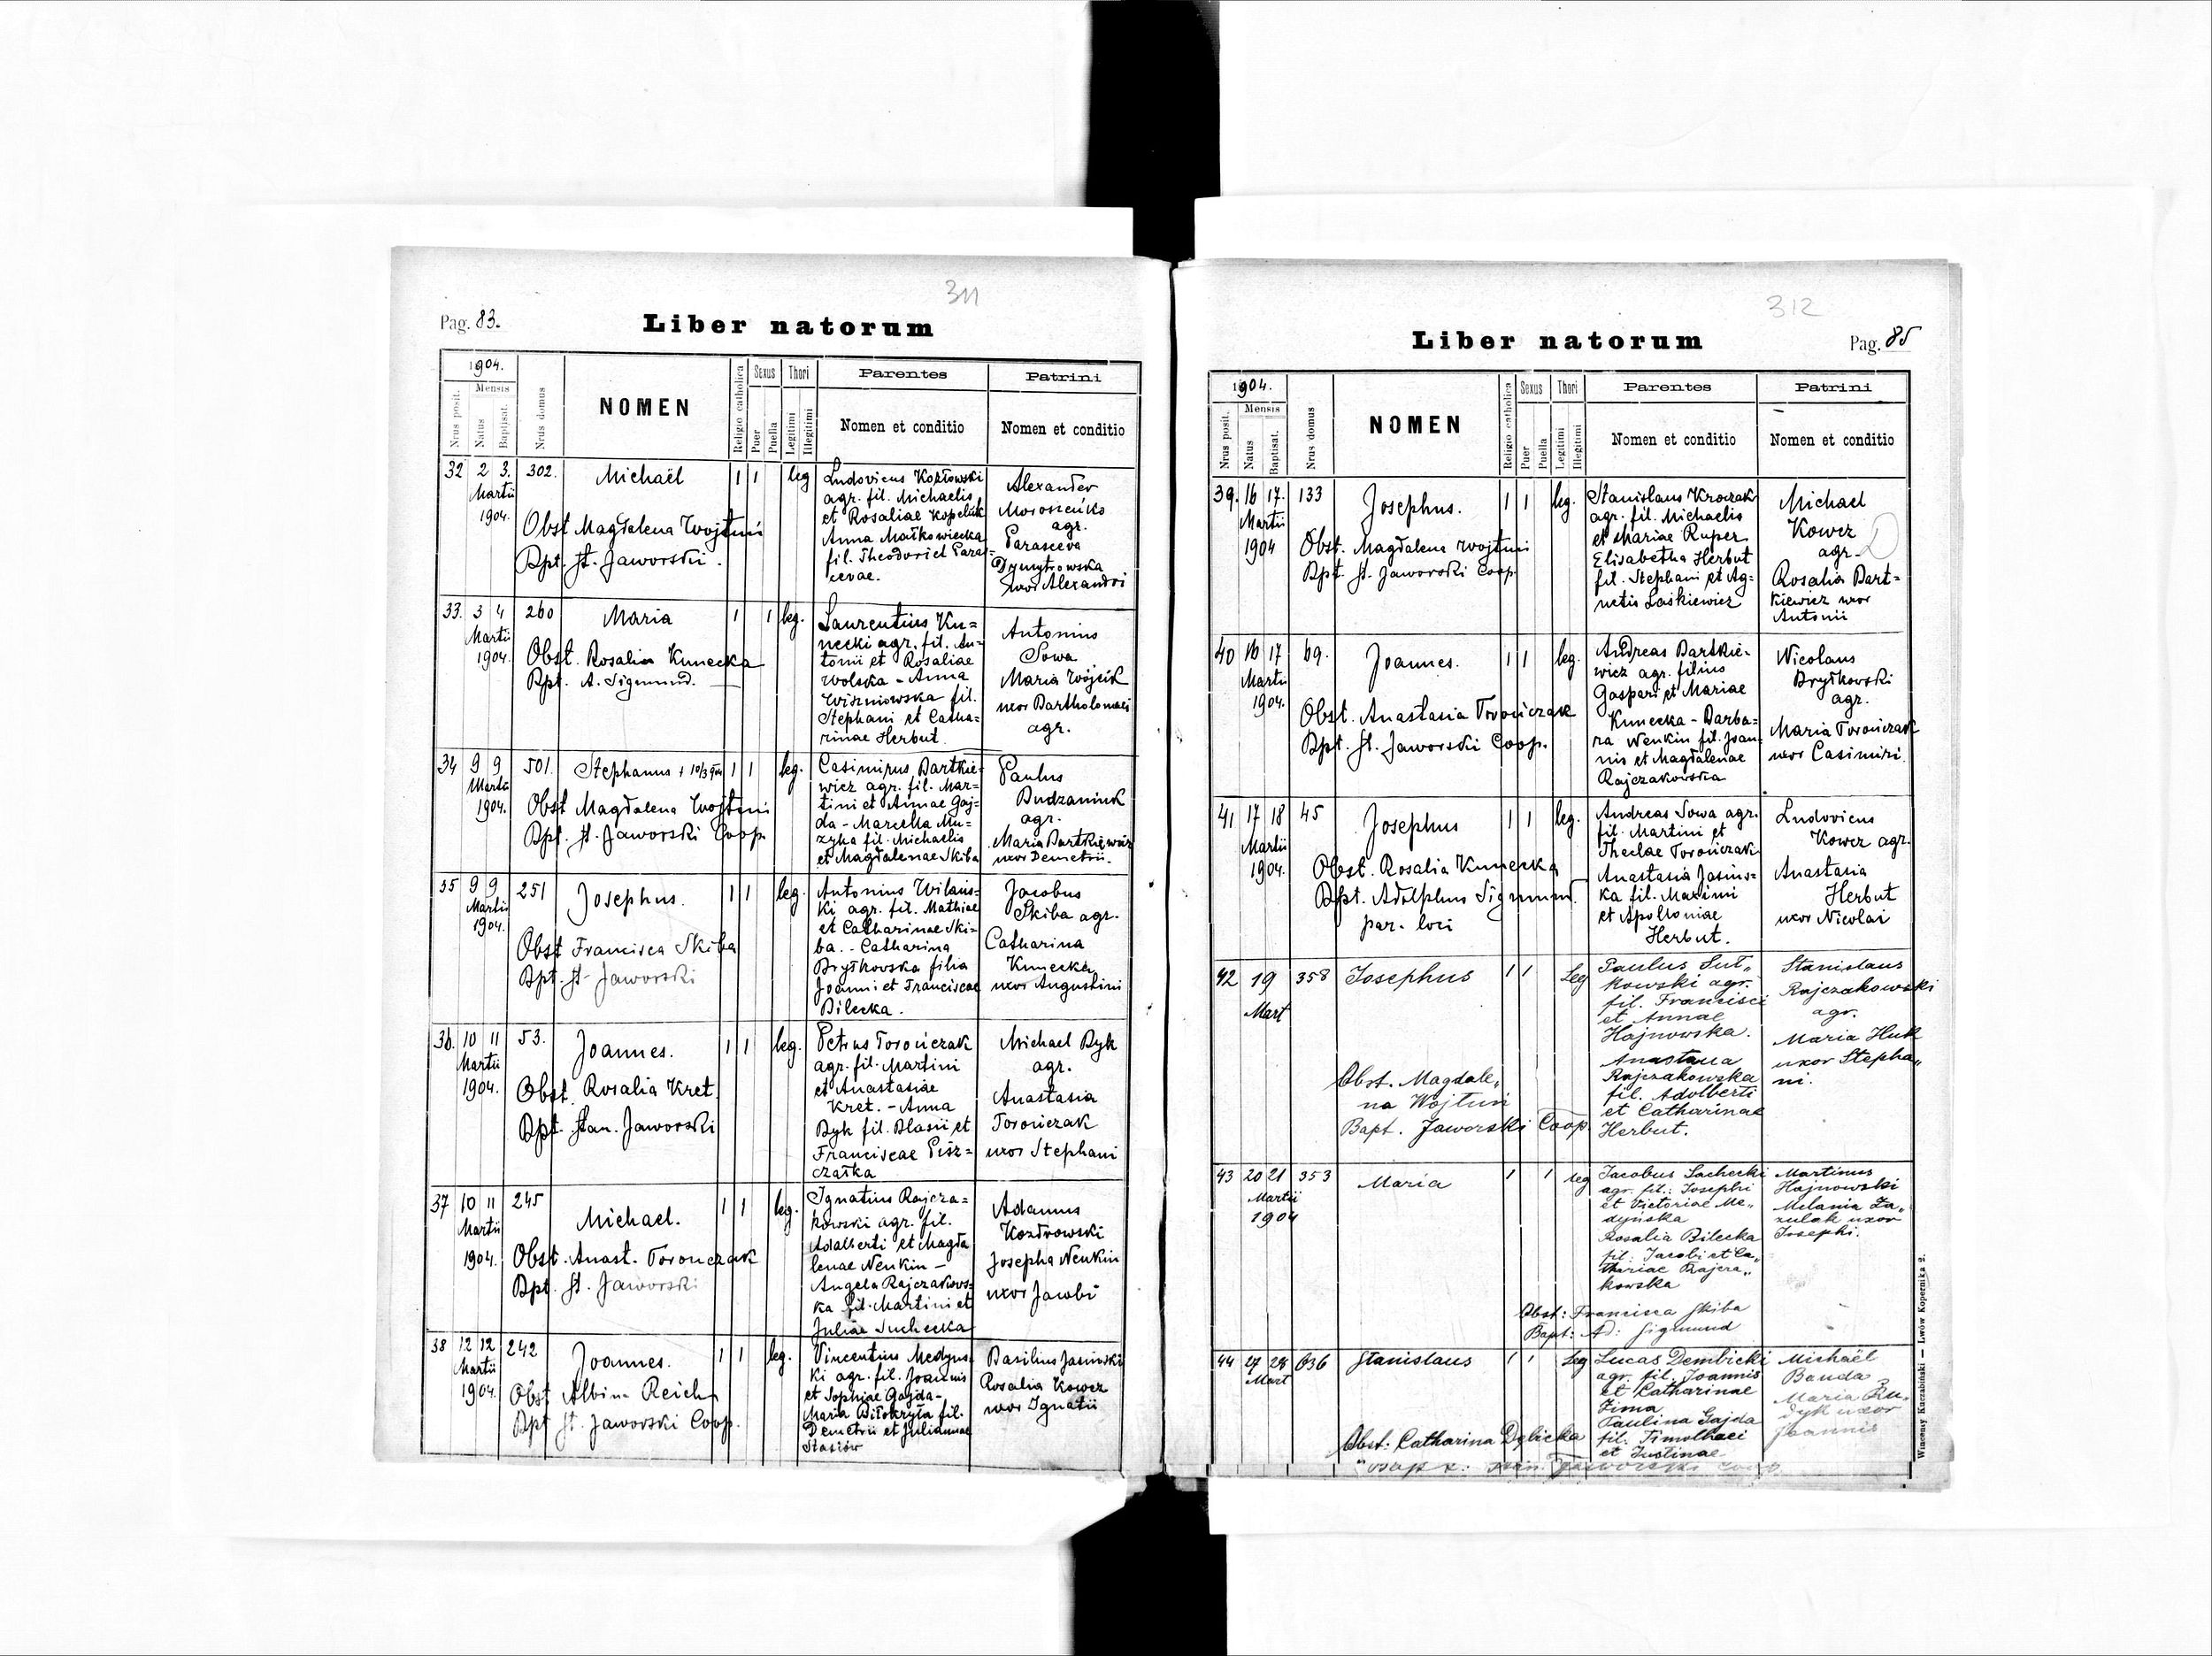 311
Pag. 83.
Liber natorum
1904.
Nrus posit.
Mensis
Natus
Baptisat.
Nrus domus
NOMEN
Religio catholica
Sexus
Puer
Puella
Thori
Legitimi
Illegitimi
Parentes
Nomen et conditio
Patrini
Nomen et conditio
32 2 3. 302. Michaël 1 1 leg
Martii
1904.
Obst Magdalena Wojtuń
Bpt. St. Jaworski.
Ludovicus Kozłowski
agr. fil. Michaelis
et Rosaliae Kopeluk
Anna Małkowiecka
fil. Theodori et Paras-
cevae.
Alexander
Moroszeńko
agr.
Parasceva
Dymytrowska
uxor Alexandri
33. 3 4 260 Maria 1 1 leg.
Martii
1904.
Obst. Rosalia Kunecka
Bpt. A. Sigmund.
Laurentius Ku=
necki agr. fil. An=
tonii et Rosaliae
Wolska - Anna
Wiszniowska fil.
Stephani et Catha=
rinae Herbut.
Antonius
Sowa
Maria Wójcik
uxor Bartholomaei
agr.
34 9 9 501. Stephanus + 10/3 904 1 1 leg.
Martii
1904.
Obst Magdalena Wojtuń
Bpt. St. Jaworski Coop.
Casimirus Bartkie=
wicz agr. fil. Mar=
tini et Annae Gaj=
da - Marcella Mu=
zyka fil. Michaelis
et Magdalenae Skiba
Paulus
Budzaniuk
agr.
Maria Bartkiewicz
uxor Demetrii.
35 9 9 251 Josephus. 1 1 leg.
Martii
1904.
Obst Francisca Skiba
Bpt. St. Jaworski
Antonius Wilans=
ki agr. fil. Mathiae
et Catharinae Ski=
ba. - Catharina
Bryłkowska filia
Joanni et Franciscae
Bilecka.
Jacobus
Skiba agr.
Catharina
Kunecka
uxor Augustini
36. 10 11 53. Joannes. 1 1 leg.
Martii
1904.
Obst. Rosalia Kret
Bpt. Stan. Jaworski
Petrus Torończak
agr. fil. Martini
et Anastasiae
Kret. - Anna
Byk fil. Blasii et
Franciscae Pisz=
czałka
Michael Byk
agr.
Anastasia
Torończak
uxor Stephani
37 10 11 245 Michael. 1 1 leg.
Martii
1904.
Obst. Anast. Torończak
Bpt. St. Jaworski
Ignatius Rajcza=
kowski agr. fil.
Adalberti et Magda
lenae Nenkin -
Angela Rajczakows=
ka fil. Martini et
Juliae Suchecka
Adamus
Kozdrowski
Josepha Nenkin
uxor Jacobi
38 12 12 242 Joannes. 1 1 leg.
Martii
1904.
Obst Albina Reich
Bpt St. Jaworski Coop.
Vincentius Medyns=
ki agr. fil. Joannis
et Sophiae Gajda -
Maria Biłokryła fil.
Demetrii et Juliannae
Stasiów
Basilius Jasiński
Rosalia Kowcz
uxor Ignatii
312
Liber natorum
Pag. 85
1904.
Nrus posit.
Mensis
Natus
Baptisat.
Nrus domus
NOMEN
Religio catholica
Sexus
Puer
Puella
Thori
Legitimi
Illegitimi
Parentes
Nomen et conditio
Patrini
Nomen et conditio
39. 16 17. 133 Josephus. 1 1 leg.
Martii
1904
Obst. Magdalena Wojtuń
Bpt. St. Jaworski Coop.
Stanislaus Kroczak
agr. fil. Michaelis
et Mariae Ruper
Elisabetha Herbut
fil. Stephani et Ag=
netis Laskiewicz
Michael
Kowcz
agr.
Rosalia Bart=
kiewicz uxor
Antonii
40 16 17 69. Joannes. 1 1 leg.
Martii
1904.
Obst. Anastasia Torończak
Bpt. St. Jaworski Coop.
Andreas Bartkie-
wicz agr. filius
Gaspari et Mariae
Kunecka - Barba=
ra Nenkin fil. Joan
nis et Magdalenae
Rajczakowska
Nicolaus
Bryłkowski
agr.
Maria Torończak
uxor Casimiri.
41 17 18 45 Josephus 1 1 leg.
Martii
1904.
Obst. Rosalia Kunecka
Bpt. Adolphus Sigmund.
par. loci
Andreas Sowa agr.
fil. Martini et
Theclae Torończak
Anastasia Jasińs=
ka fil. Maximi
et Apolloniae
Herbut.
Ludovicus
Kowcz agr.
Anastasia
Herbut
uxor Nicolai
42 19 358 Josephus 1 1 Leg
Mart
Obst. Magdale„
na Wojtuń
Bapt. Jaworski Coop.
Paulus Sut„
kowski agr.
fil. Francisci
et Annae
Hajnowska.
Anastasia
Rajczakowska
fil. Adolberti
et Catharinae
Herbut.
Stanislaus
Rajczakowski
agr.
Maria Huk
uxor Stepha„
ni.
43 20 21 353 Maria 1 1 leg
Martii
1904
Jacobus Sachecki
agr. fil.: Josephi
et Victoriae Me„
dyńska
Rosalia Bilecka
fil: Jacobi et Ca„
thariae Rajcza„
kowska
Martinus
Hajnowski
Melania Za„
zulak uxor
Josephi.
Obst: Francisca Skiba
Bapt: Ad: Sigmund
44 27 28 636 Stanislaus 1 1 Leg
Mart
Obst: Catharina Dębicka
Lucas Dembicki
agr. fil. Joannis
et Catharinae
Zima
Paulina Gajda
fil. Timothaei
et Justinae
Michaël
Banda
Maria Ru„
dyk uxor
Joannis
Jaworski coop.
Wincenty Kuczabiński — Lwów Kopernika 2.